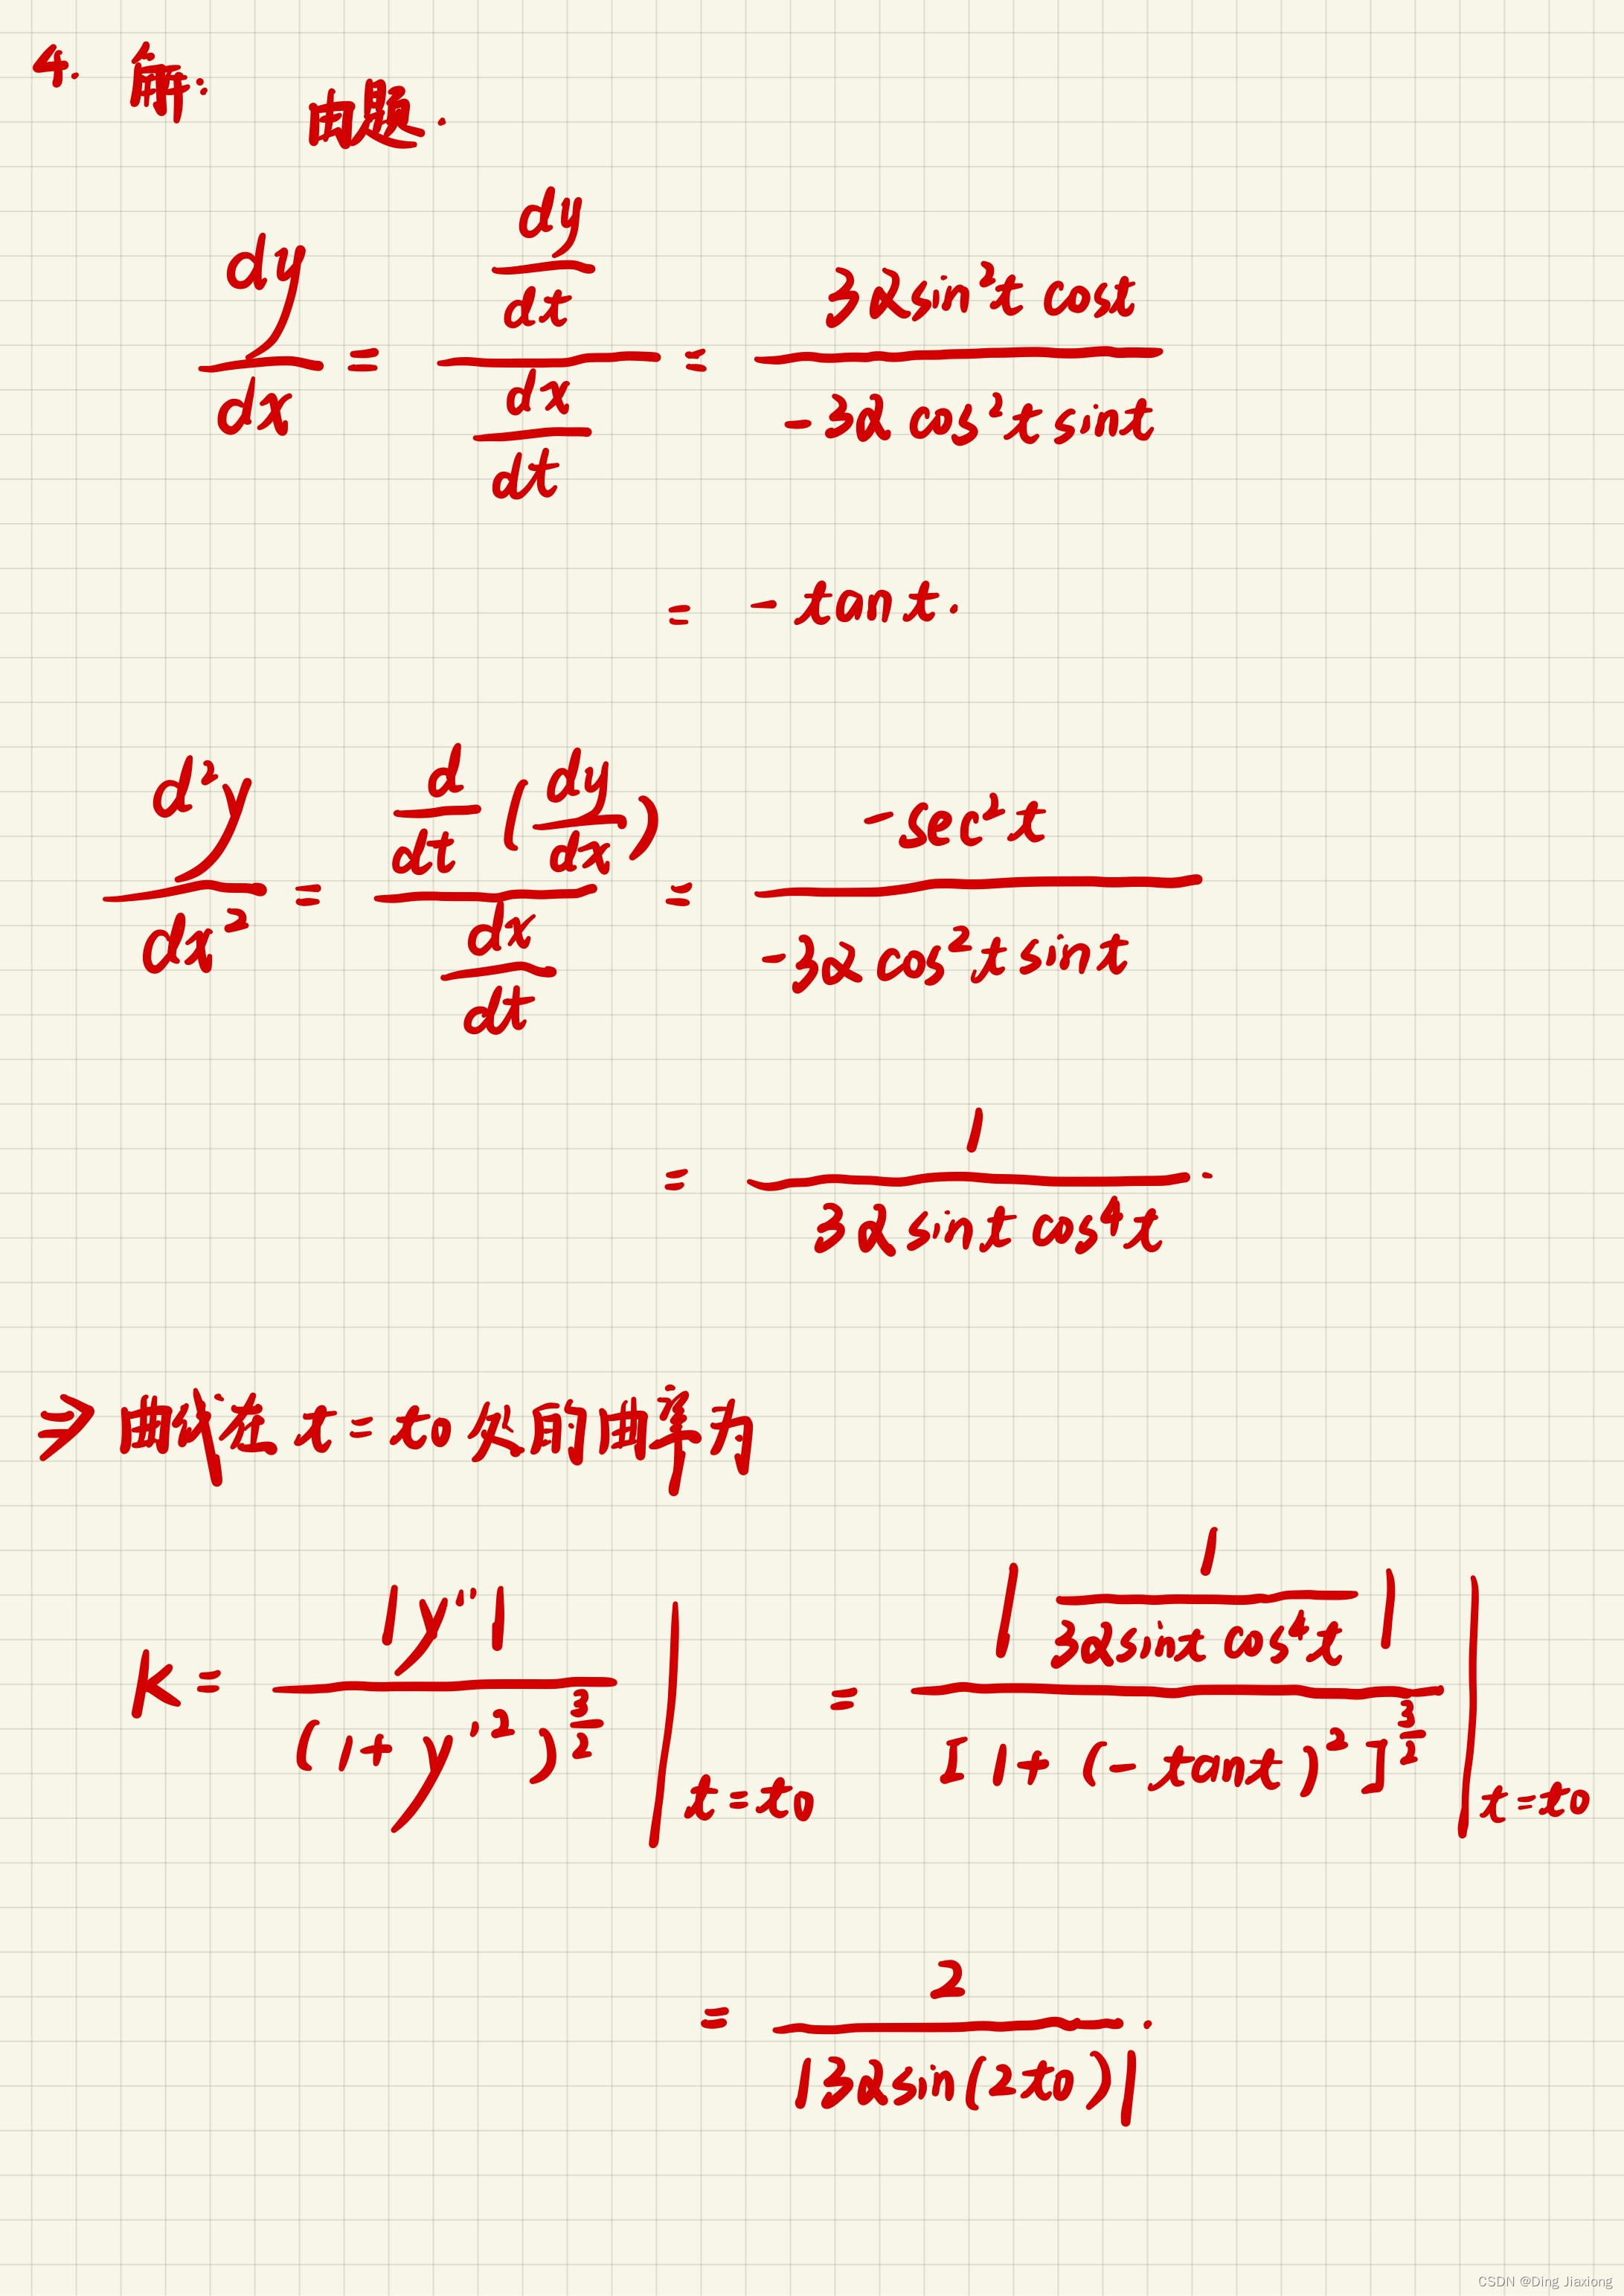 4. 解:
由题.
dy/dx = (dy/dt)/(dx/dt) = (3αsin²t cost)/(-3α cos²t sint)
= -tant.
d²y/dx² = (d/dt(dy/dx))/(dx/dt) = (-sec²t)/(-3α cos²t sint)
= 1/(3α sint cos⁴t).
⇒ 曲线在 t=t0 处的曲率为
K = |y''|/(1+y'²)^(3/2) |t=t0 = |1/(3αsint cos⁴t)|/[1+(-tant)²]^(3/2) |t=t0
= 2/|3αsin(2t0)|.
CSDN @Ding Jiaxiong